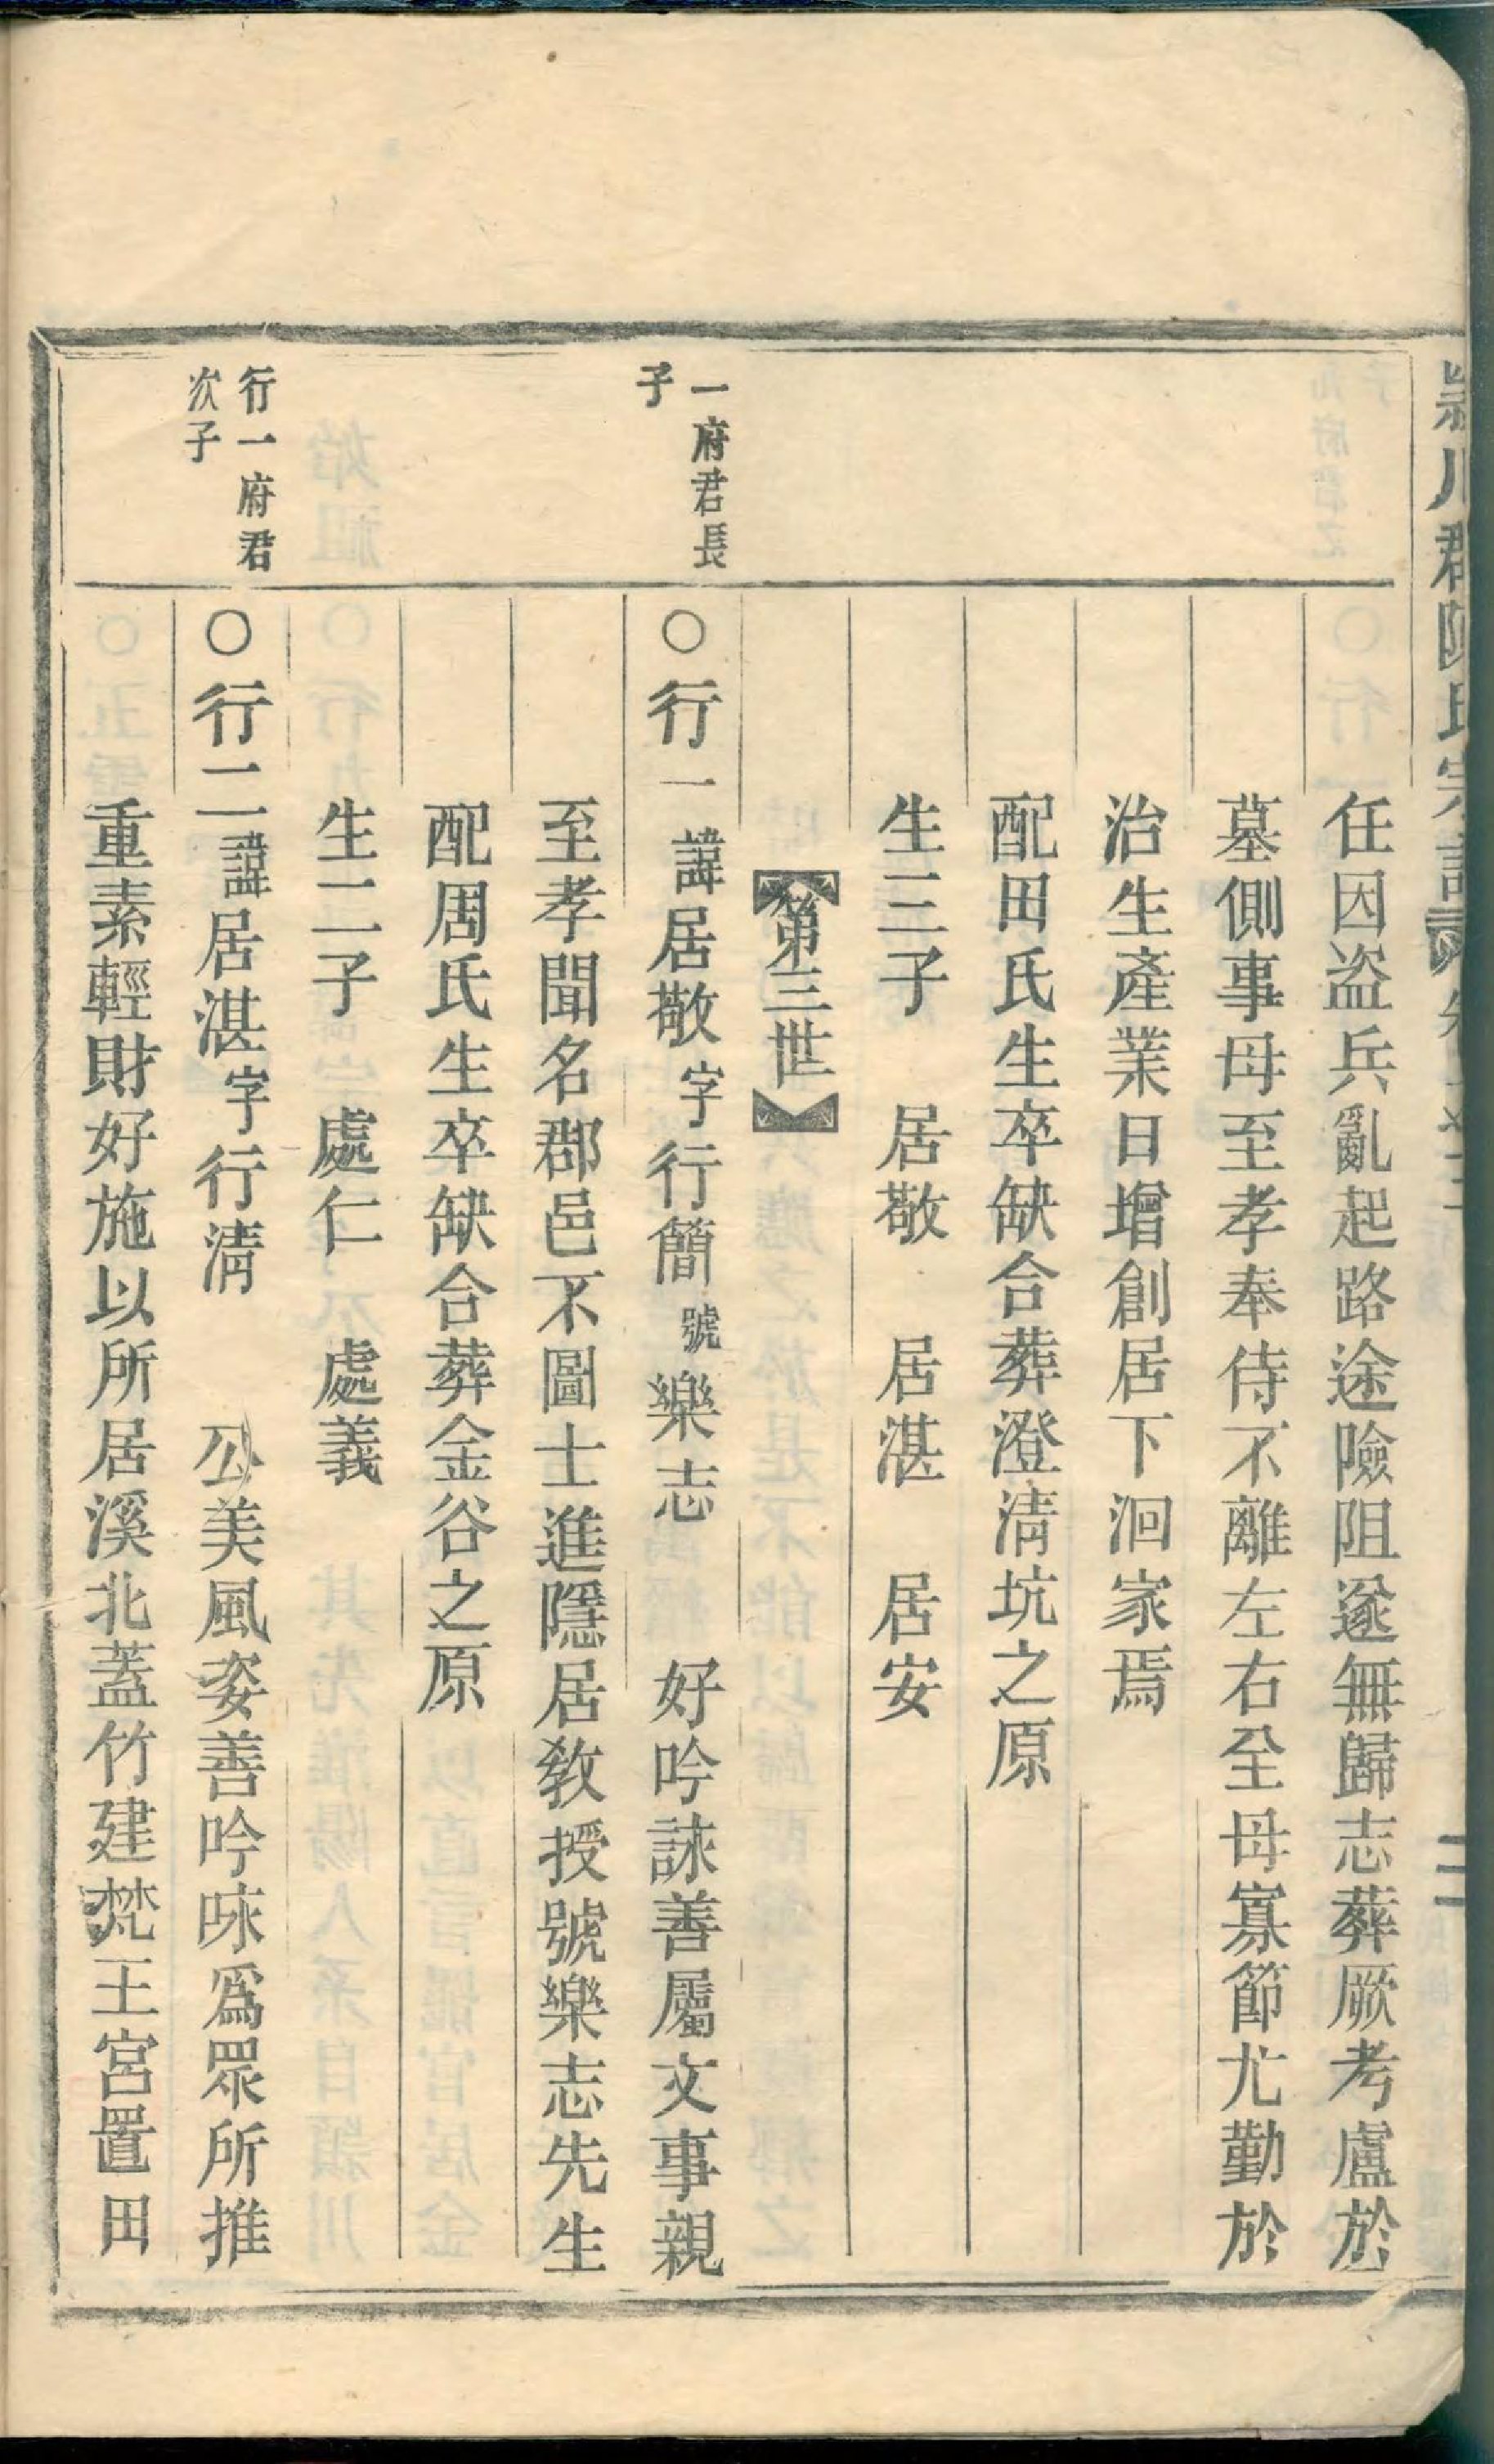 潁川郡陳氏宗譜 卷 二
任因盗兵亂起路途險阻遂無歸志葬厥考廬於
墓側事母至孝奉侍不離左右至母寡節尤勤於
治生產業日增創居下洄家焉
配田氏生卒缺合葬澄清坑之原
生三子 居敬 居湛 居安
第三世
一府君長
子
○行一諱居敬字行簡號樂志 好吟詠善屬文事親
至孝聞名郡邑不圖士進隱居教授號樂志先生
配周氏生卒缺合葬金谷之原
生二子 處仁 處義
行一府君
次子
○行二諱居湛字行清 公美風姿善吟咏爲眾所推
重素輕財好施以所居溪北蓋竹建梵王宮置田